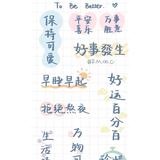 To Be Better.
保持可愛
平安
喜乐
万事
胜意
好事發生
早睡早起
好运百分百
拒绝熬夜
生活
万物可